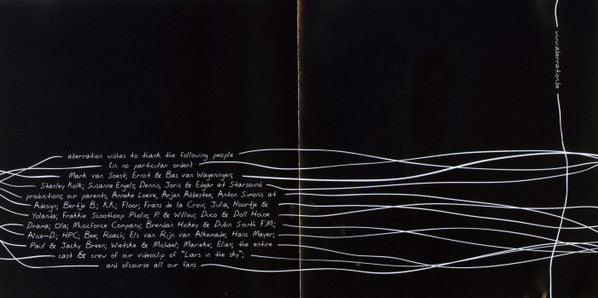 aberration wishes to thank the following people
(in no particular order)
Mark van Soest; Ernst & Bas van Wageningen;
Stanley Kolk; Susanne Engels; Dennis, Joris & Edgar at Starsound
productions; our parents; Anneke Loeve; Arjen Abbestee; Anton Simonis at
Adesign; Bertje B.; KK; Floor; Frans de la Croix; Julia, Noortje &
Yolanda; Frankie Scootloop Photo; P. & Willow; Duco & Doll House
Drama; Ola; Musicforce Company; Brendan Hickey & Dublin South F.M.;
Alice-D; HPC; Bee; Roach; Els van Rijs van Alkemade; Hans Mayer;
Paul & Jacky Breen; Wietske & Michael; Marieke; Elien; the entire
cast & crew of our videoclip of "Liars in the sky";
and ofcourse all our fans
www.aberration.be